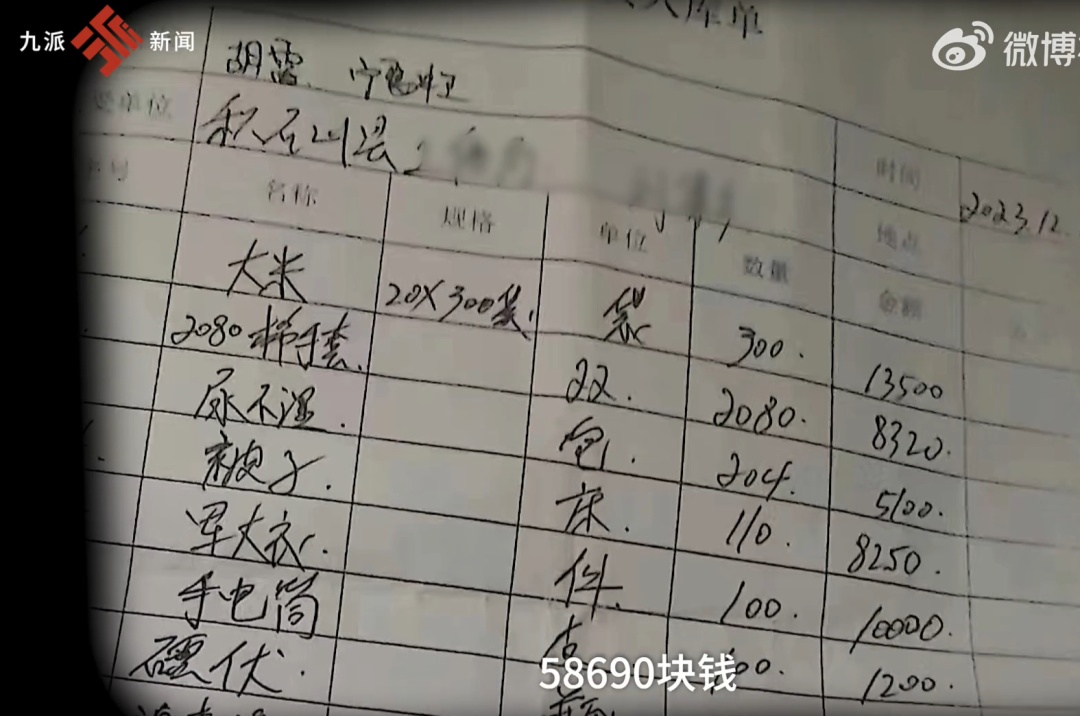 九派 新闻
微博
入库单
胡雷、宁
受单位 积石山县 时间 2023.12.
名称 规格 单位 数量 地点
金额
大米 20×300袋. 袋 300. 13500
2080 手套. 22. 2080. 8320.
尿不湿. 包. 204. 5100.
被子. 床. 110. 8250.
军大衣. 件. 100. 10000.
手电筒 1200.
58690块钱